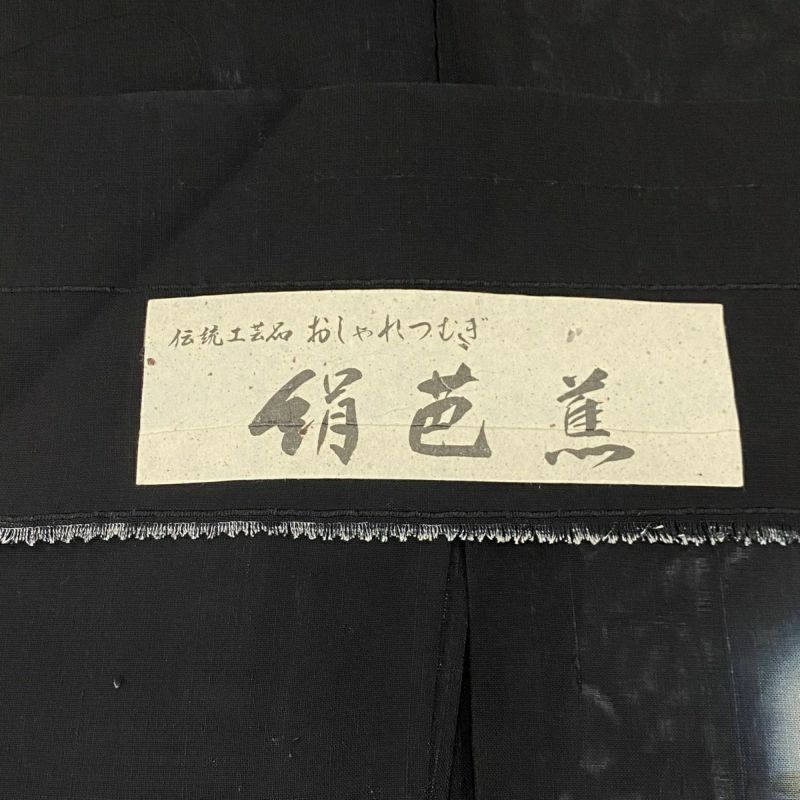 伝統工芸品 おしゃれつむぎ
絹芭蕉